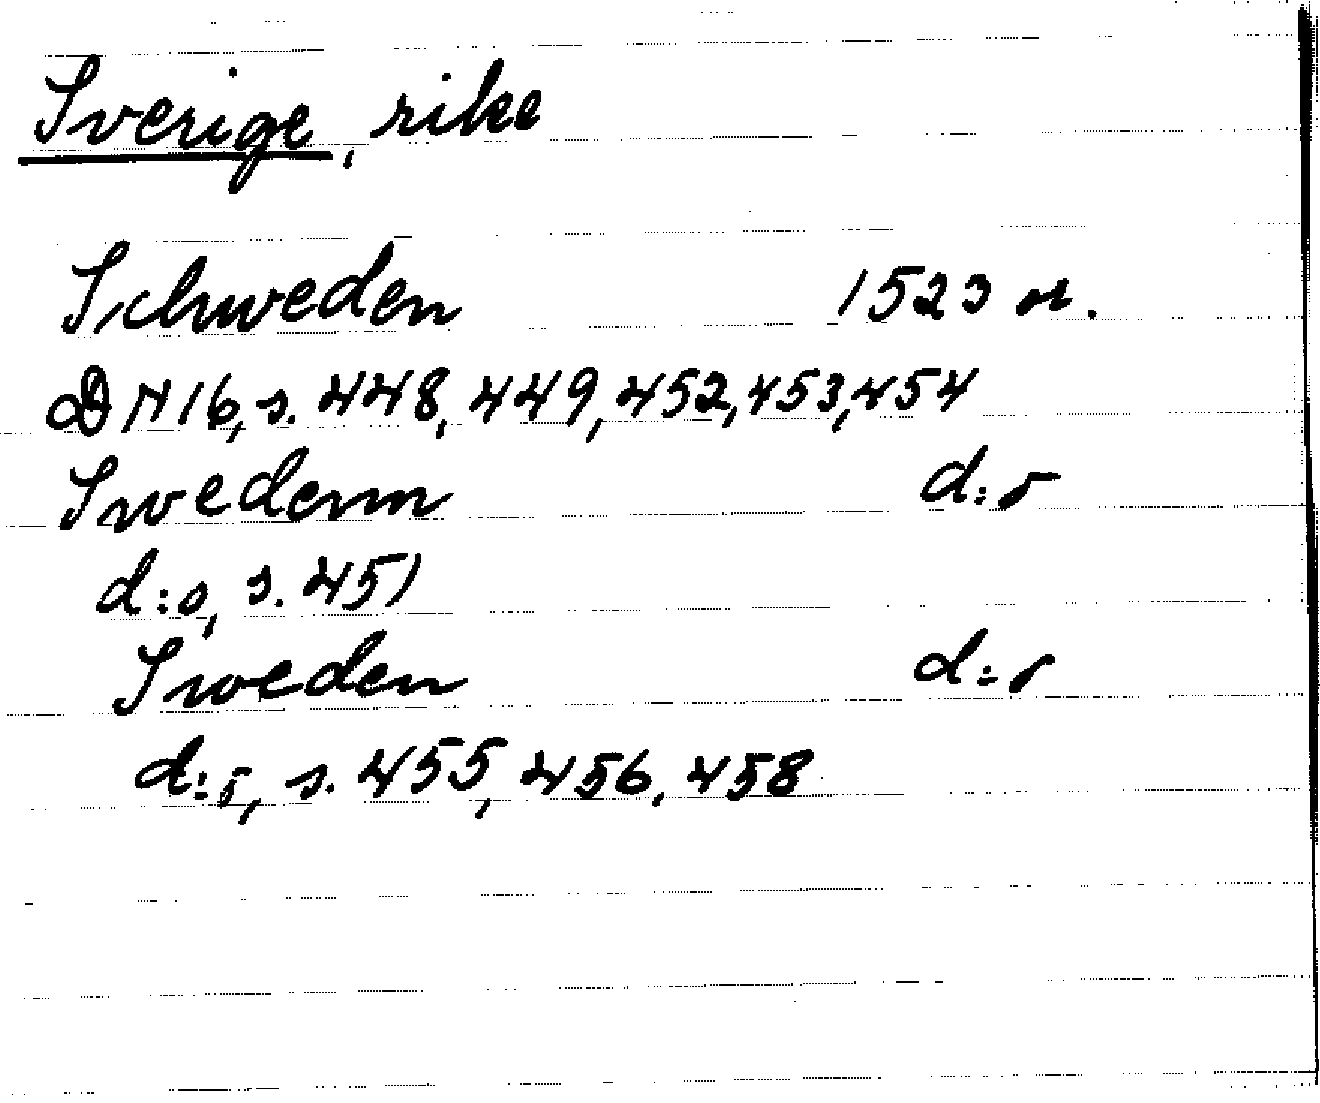 Sverige, rike
Schweden 1523 or.
DN 16, s. 448, 449, 452, 453, 454
Swedenn d:o
d:o, s. 451
Sweden d:o
d:o, s. 455, 456, 458